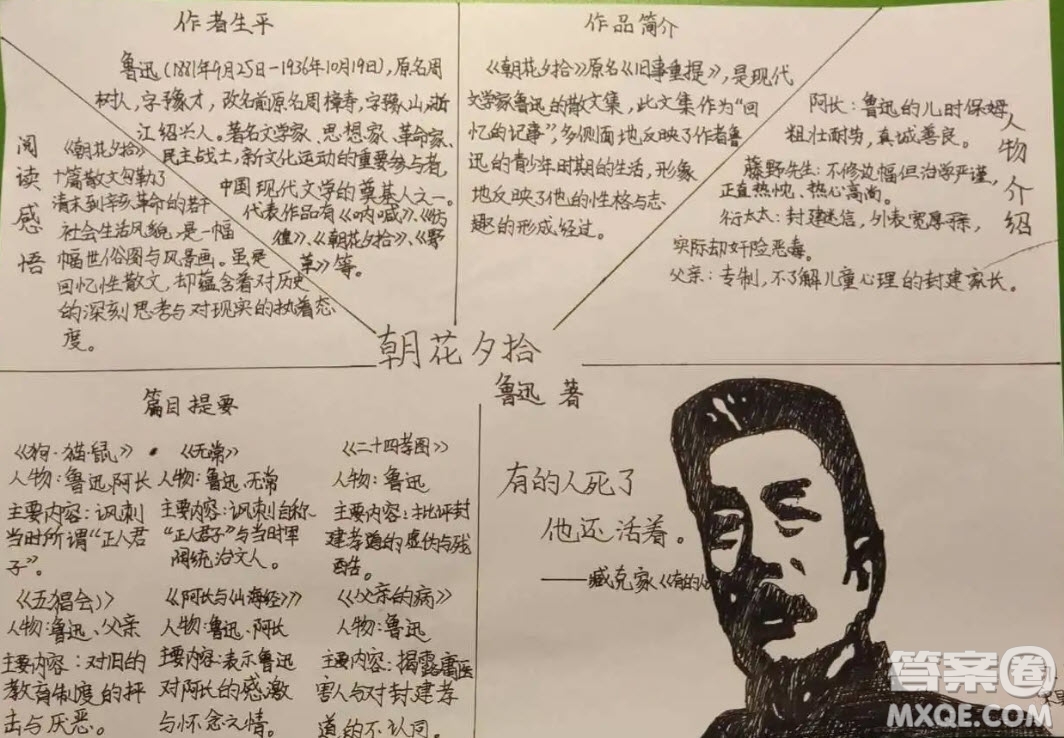 作者生平
鲁迅(1881年9月25日-1936年10月19日),原名周
树人,字豫才,改名前原名周樟寿,字豫山,浙
江绍兴人。著名文学家、思想家、革命家、
民主战士,新文化运动的重要参与者,
中国现代文学的奠基人之一。
代表作品有《呐喊》、《彷
徨》、《朝花夕拾》、《野
草》等。
阅读感悟
《朝花夕拾》
十篇散文勾勒了
清末到辛亥革命的若干
社会生活风貌,是一幅
幅世俗图与风景画。虽是
回忆性散文,却蕴含着对历史
的深刻思考与对现实的执着态
度。
作品简介
《朝花夕拾》原名《旧事重提》,是现代
文学家鲁迅的散文集,此文集作为“回
忆的记事”,多侧面地反映了作者鲁
迅的青少年时期的生活,形象
地反映了他的性格与志
趣的形成经过。
人物介绍
阿长:鲁迅的儿时保姆,
粗壮耐劳,真诚善良。
藤野先生:不修边幅但治学严谨,
正直热忱、热心高尚。
衍太太:封建迷信,外表宽厚
实际却奸险恶毒。
父亲:专制,不了解儿童心理的封建家长。
朝花夕拾
鲁迅 著
篇目提要
《狗·猫·鼠》
人物:鲁迅、阿长
主要内容:讽刺
当时所谓“正人君
子”。
《无常》
人物:鲁迅、无常
主要内容:讽刺自称
“正人君子”与当时军
阀统治文人。
《二十四孝图》
人物:鲁迅
主要内容:批评封
建孝道的虚伪与残
酷。
《五猖会》
人物:鲁迅、父亲
主要内容:对旧的
教育制度的抨
击与厌恶。
《阿长与山海经》
人物:鲁迅、阿长
主要内容:表示鲁迅
对阿长的感激
与怀念之情。
《父亲的病》
人物:鲁迅
主要内容:揭露庸医
害人与对封建孝
道的不认同。
有的人死了
他还活着。
——臧克家《有的人
答案圈
MXQE.COM